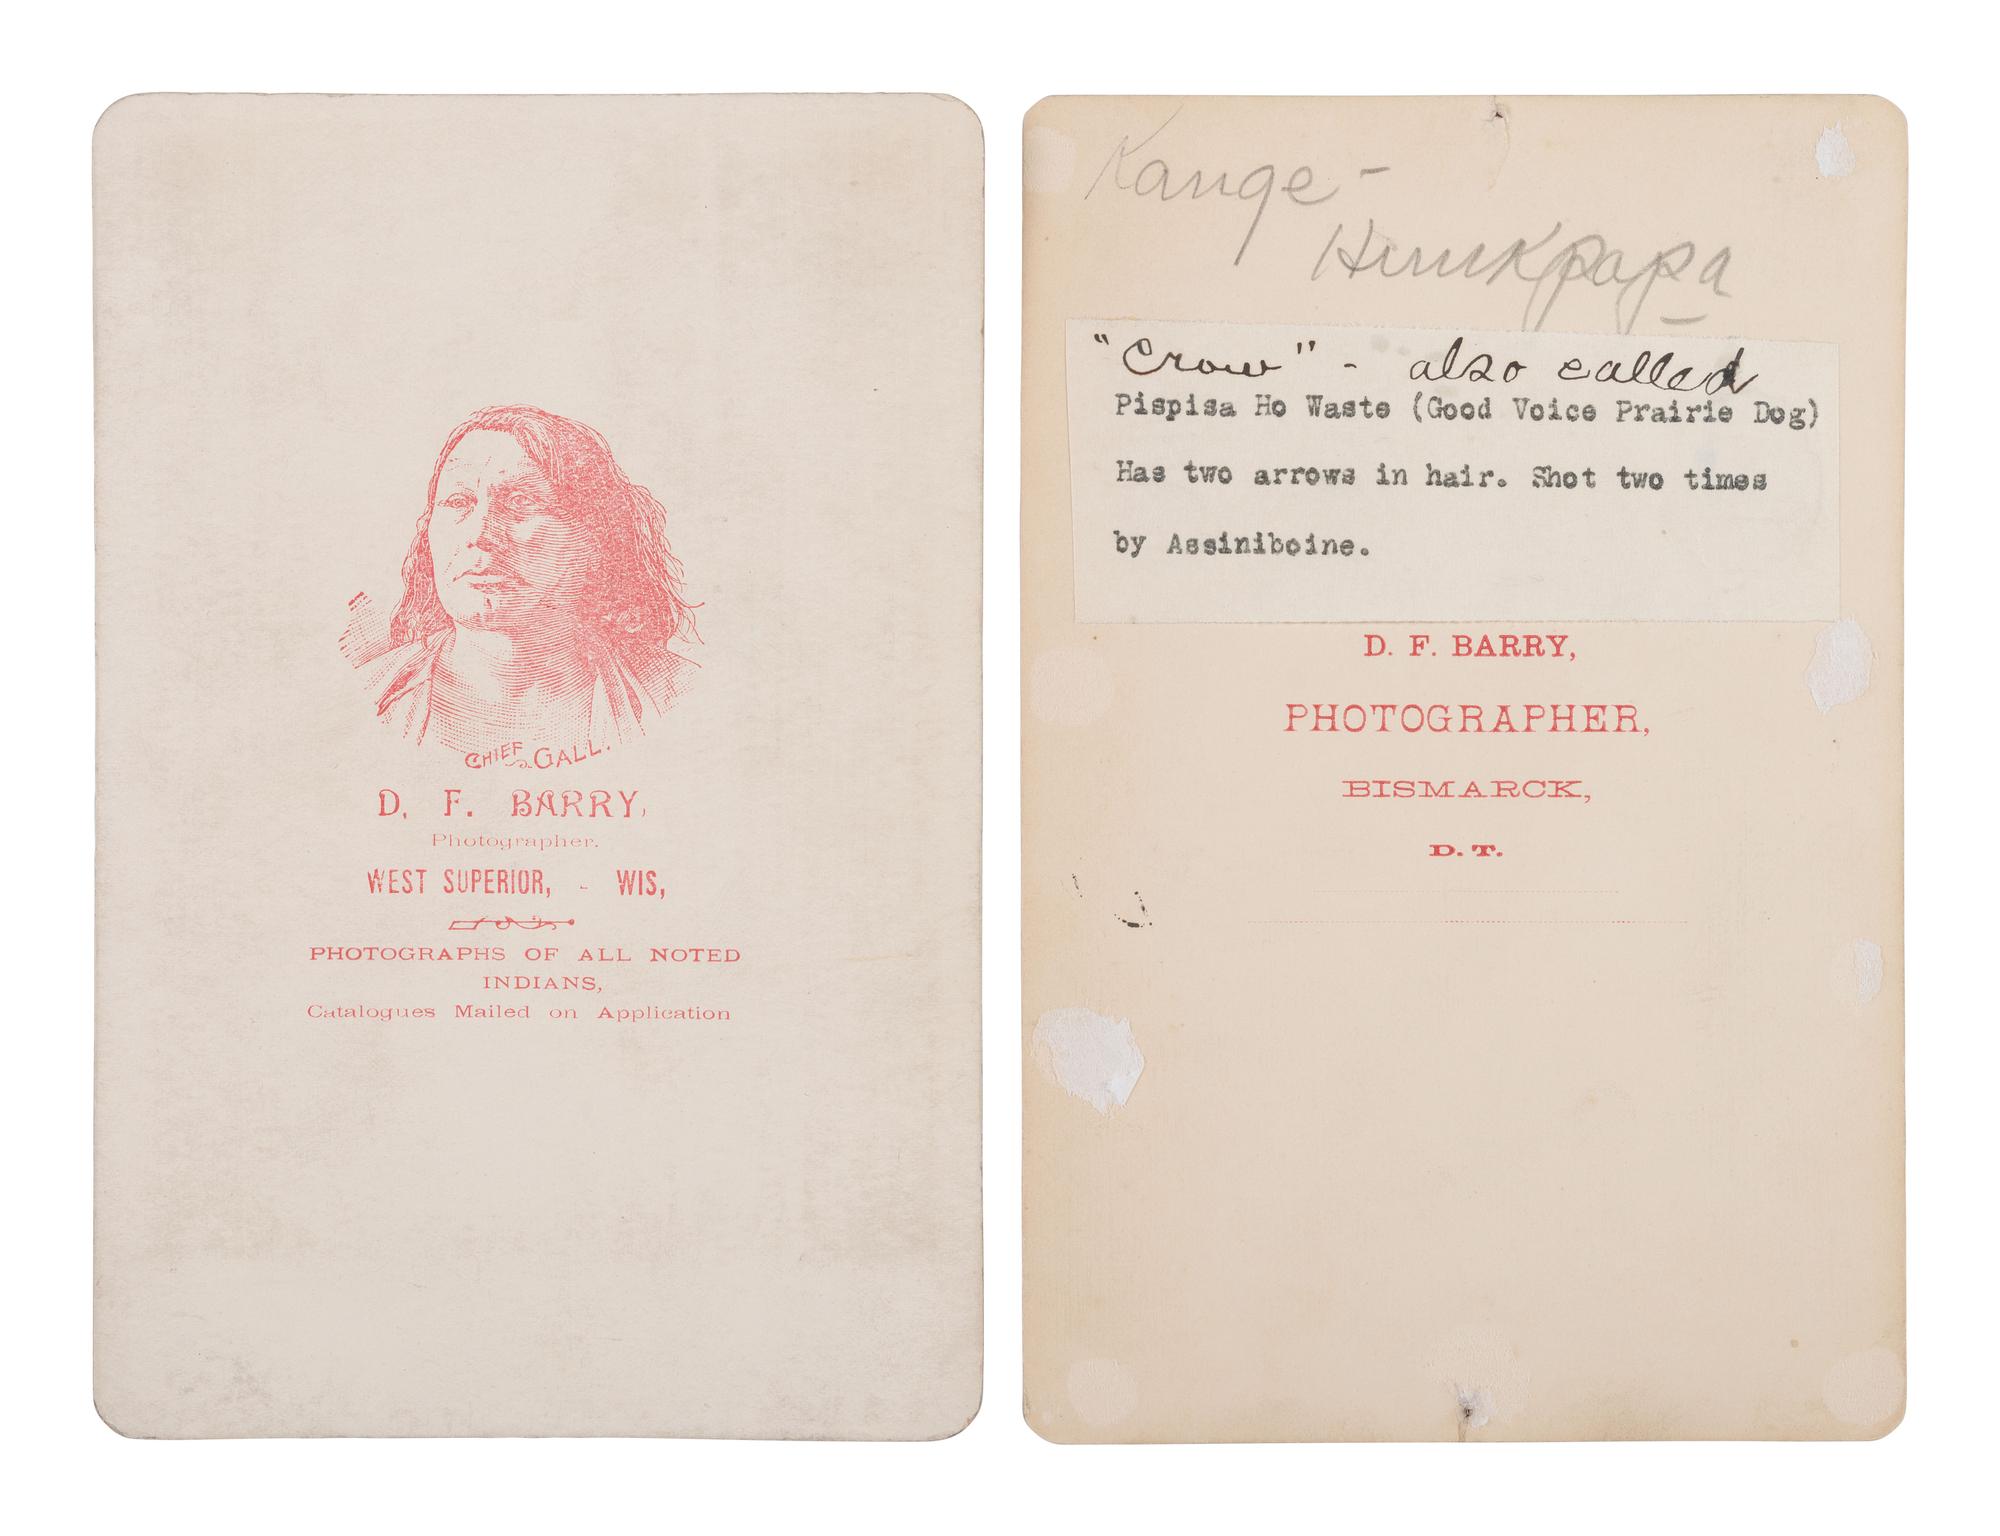 CHIEF GALL.
D. F. BARRY,
Photographer.
WEST SUPERIOR, - WIS,
PHOTOGRAPHS OF ALL NOTED
INDIANS,
Catalogues Mailed on Application
Kange -
Hunkpapa
"Crow" - also called
Pispisa Ho Waste (Good Voice Prairie Dog)
Has two arrows in hair. Shot two times
by Assiniboine.
D. F. BARRY,
PHOTOGRAPHER,
BISMARCK,
D. T.